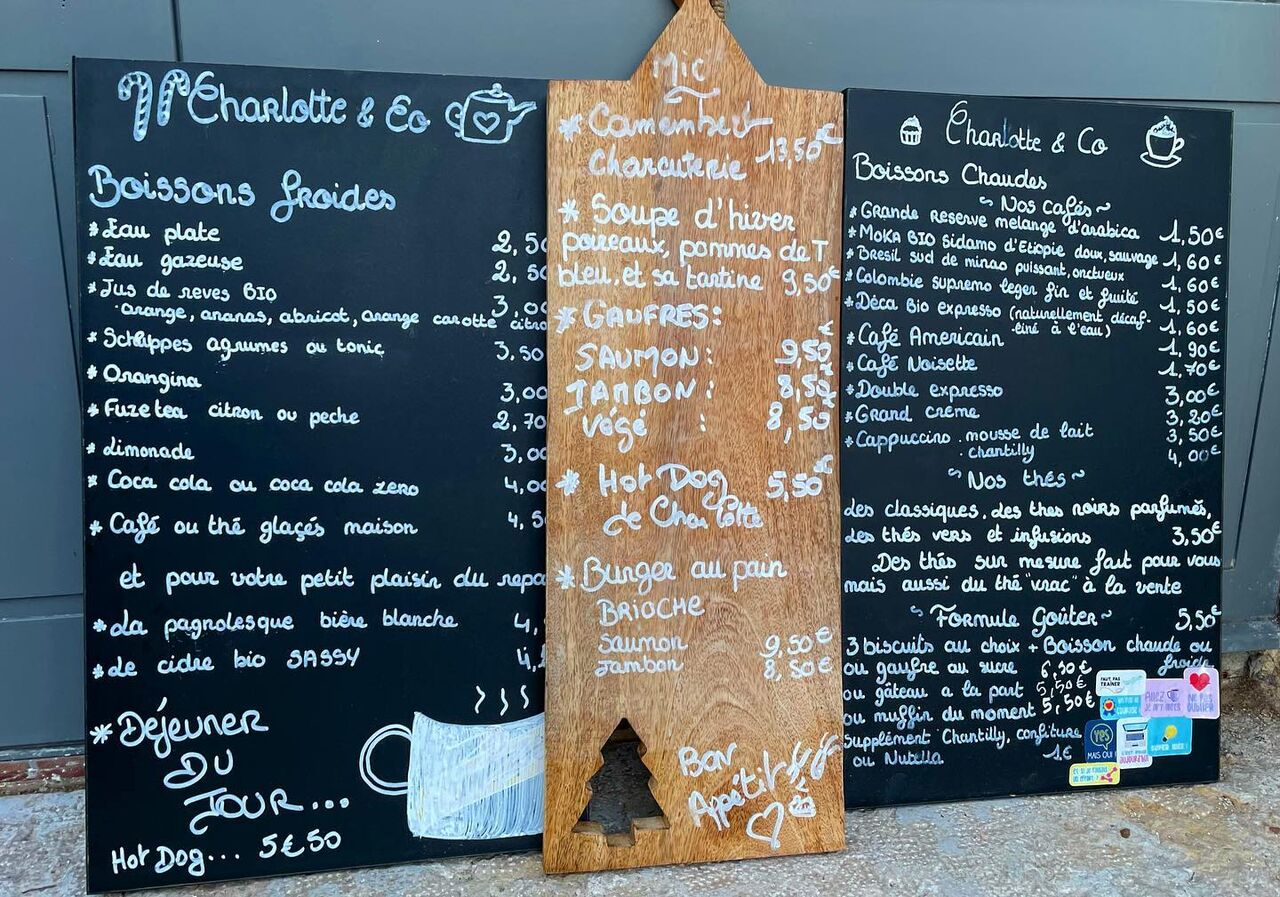 Charlotte & Co
Boissons froides
* Eau plate 2,50
* Eau gazeuse 2,50
* Jus de reves BIO 3,00
orange, ananas, abricot, orange carotte citro
* Schuppes agrumes ou tonic 3,50
* Orangina 3,00
* Fuze tea citron ou peche 2,70
* Limonade 3,00
* Coca cola ou coca cola zero 4,00
* Café ou thé glaçés maison 4,50
et pour votre petit plaisir du repa
* La pagnolesque bière blanche 4,
* Le cidre bio SASSY 4,
* Déjeuner
DU
JOUR...
Hot Dog... 5€50
Mic
* Camembert
Charcuterie 13,50€
* Soupe d'hiver
poireaux, pommes de T
bleu, et sa tartine 9,50€
* GAUFRES:
SAUMON: 9,50€
JAMBON: 8,50€
Végé : 8,50
* Hot Dog 5,50€
de Charlotte
* Burger au pain
BRIOCHE
Saumon 9,50€
Jambon 8,50€
Bon
Appétit
Charlotte & Co
Boissons Chaudes
~ Nos cafés ~
* Grande reserve melange d'arabica 1,50€
* Moka BIO sidamo d'Etiopie doux, sauvage 1,60€
* Bresil sud de minas puissant, onctueux 1,60€
* Colombie supremo leger fin et fruité 1,50€
* Déca Bio expresso (naturellement décaf- 1,60€
éiné à l'eau)
* Café Americain 1,90€
* Café Noisette 1,70€
* Double expresso 3,00€
* Grand crème 3,20€
* Cappuccino . mousse de lait 3,50€
. chantilly 4,00€
~ Nos thés ~
des classiques, des thes noirs parfumés,
des thés vers et infusions 3,50€
Des thés sur mesure fait pour vous
mais aussi du thé "vrac" à la vente
~ Formule Goûter ~ 5,50€
3 biscuits au choix + Boisson chaude ou
froide
ou gaufre au sucre 6,90€
ou gâteau a la part 5,50€
ou muffin du moment 5,50€
Supplément Chantilly, confiture
ou Nutella 1€
FAUT PAS
TRAÎNER
NE PAS
OUBLIER
YES
MAIS OUI
SUPER IDÉE